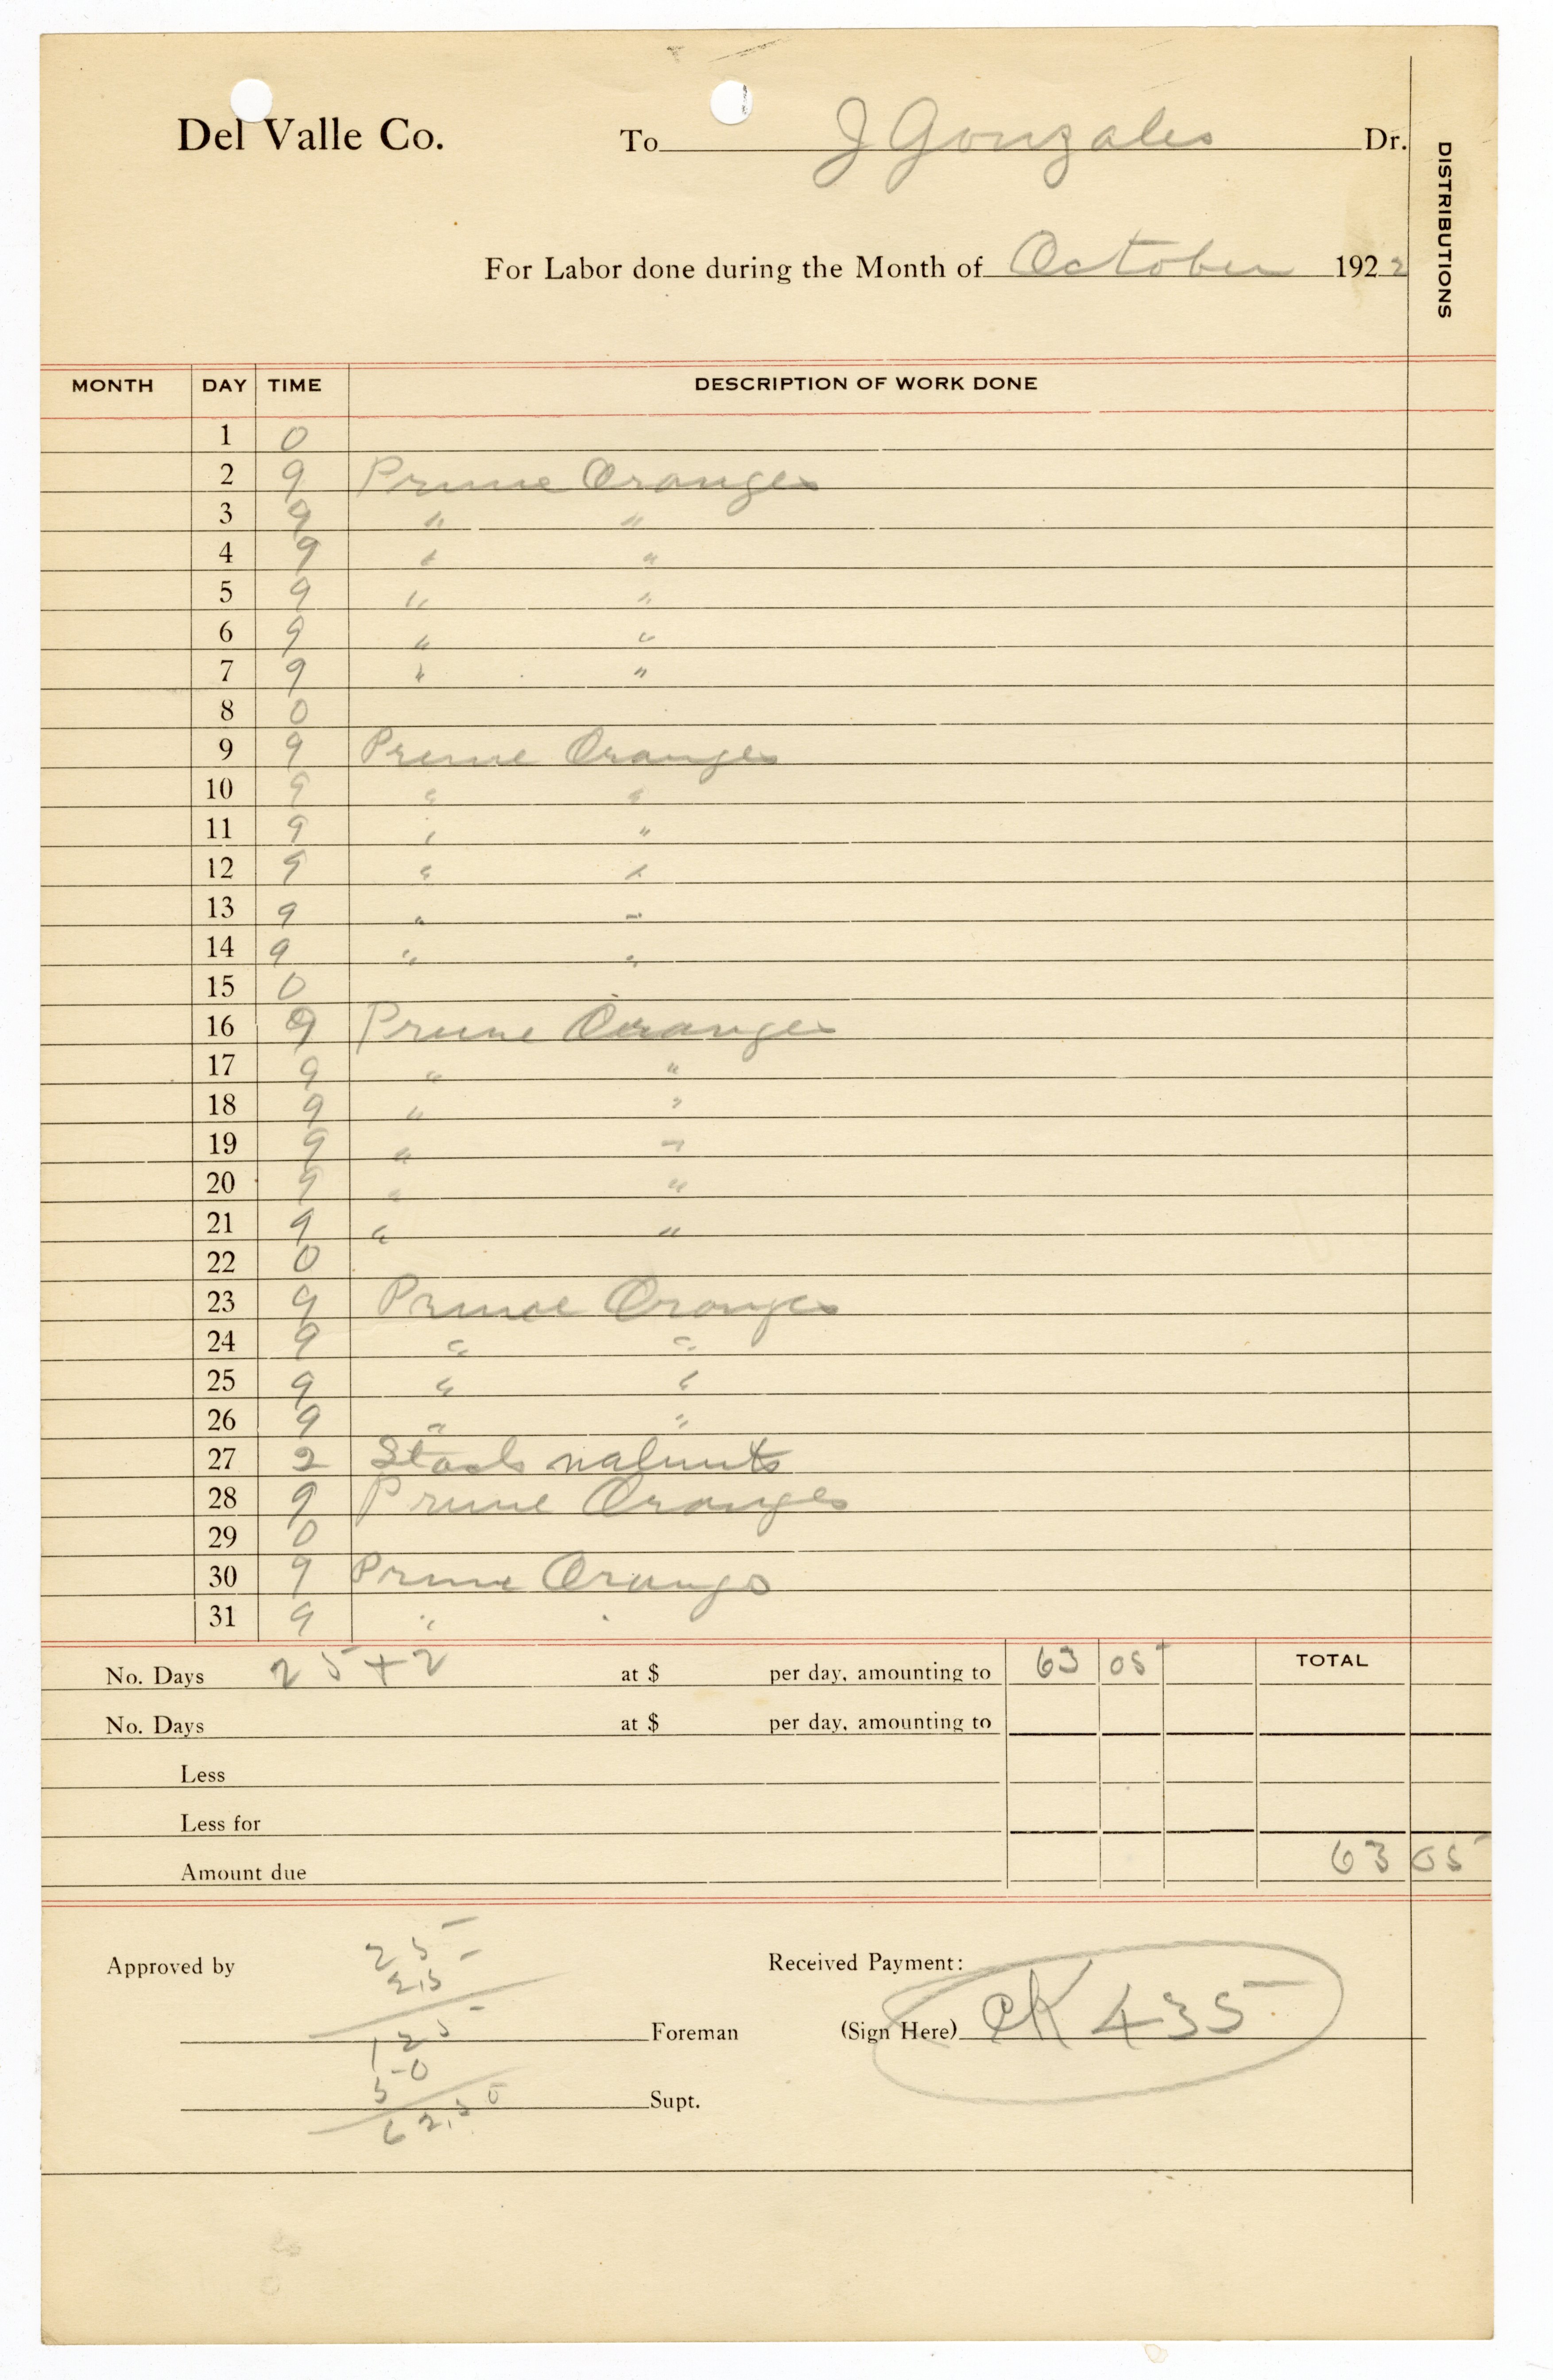 Del Valle Co. To J Gonzales Dr.
DISTRIBUTIONS
For Labor done during the Month of October 1922
MONTH DAY TIME DESCRIPTION OF WORK DONE
1 0
2 9 Prune Oranges
3 9 " "
4 9 " "
5 9 " "
6 9 " "
7 9 " "
8 0
9 9 Prune Oranges
10 9 " "
11 9 " "
12 9 " "
13 9 " "
14 9 " "
15 0
16 9 Prune Oranges
17 9 " "
18 9 " "
19 9 " "
20 9 " "
21 9 " "
22 0
23 9 Prune Oranges
24 9 " "
25 9 " "
26 9 " "
27 2 walnuts
28 9 Prune Oranges
29 0
30 9 Prune Oranges
31 9 "
No. Days 25+2 at $ per day, amounting to 63 05 TOTAL
No. Days at $ per day, amounting to
Less
Less for
Amount due 63 05
Approved by 25 Received Payment:
2.5
125 Foreman (Sign Here) CK 435
50
Supt.
62.50